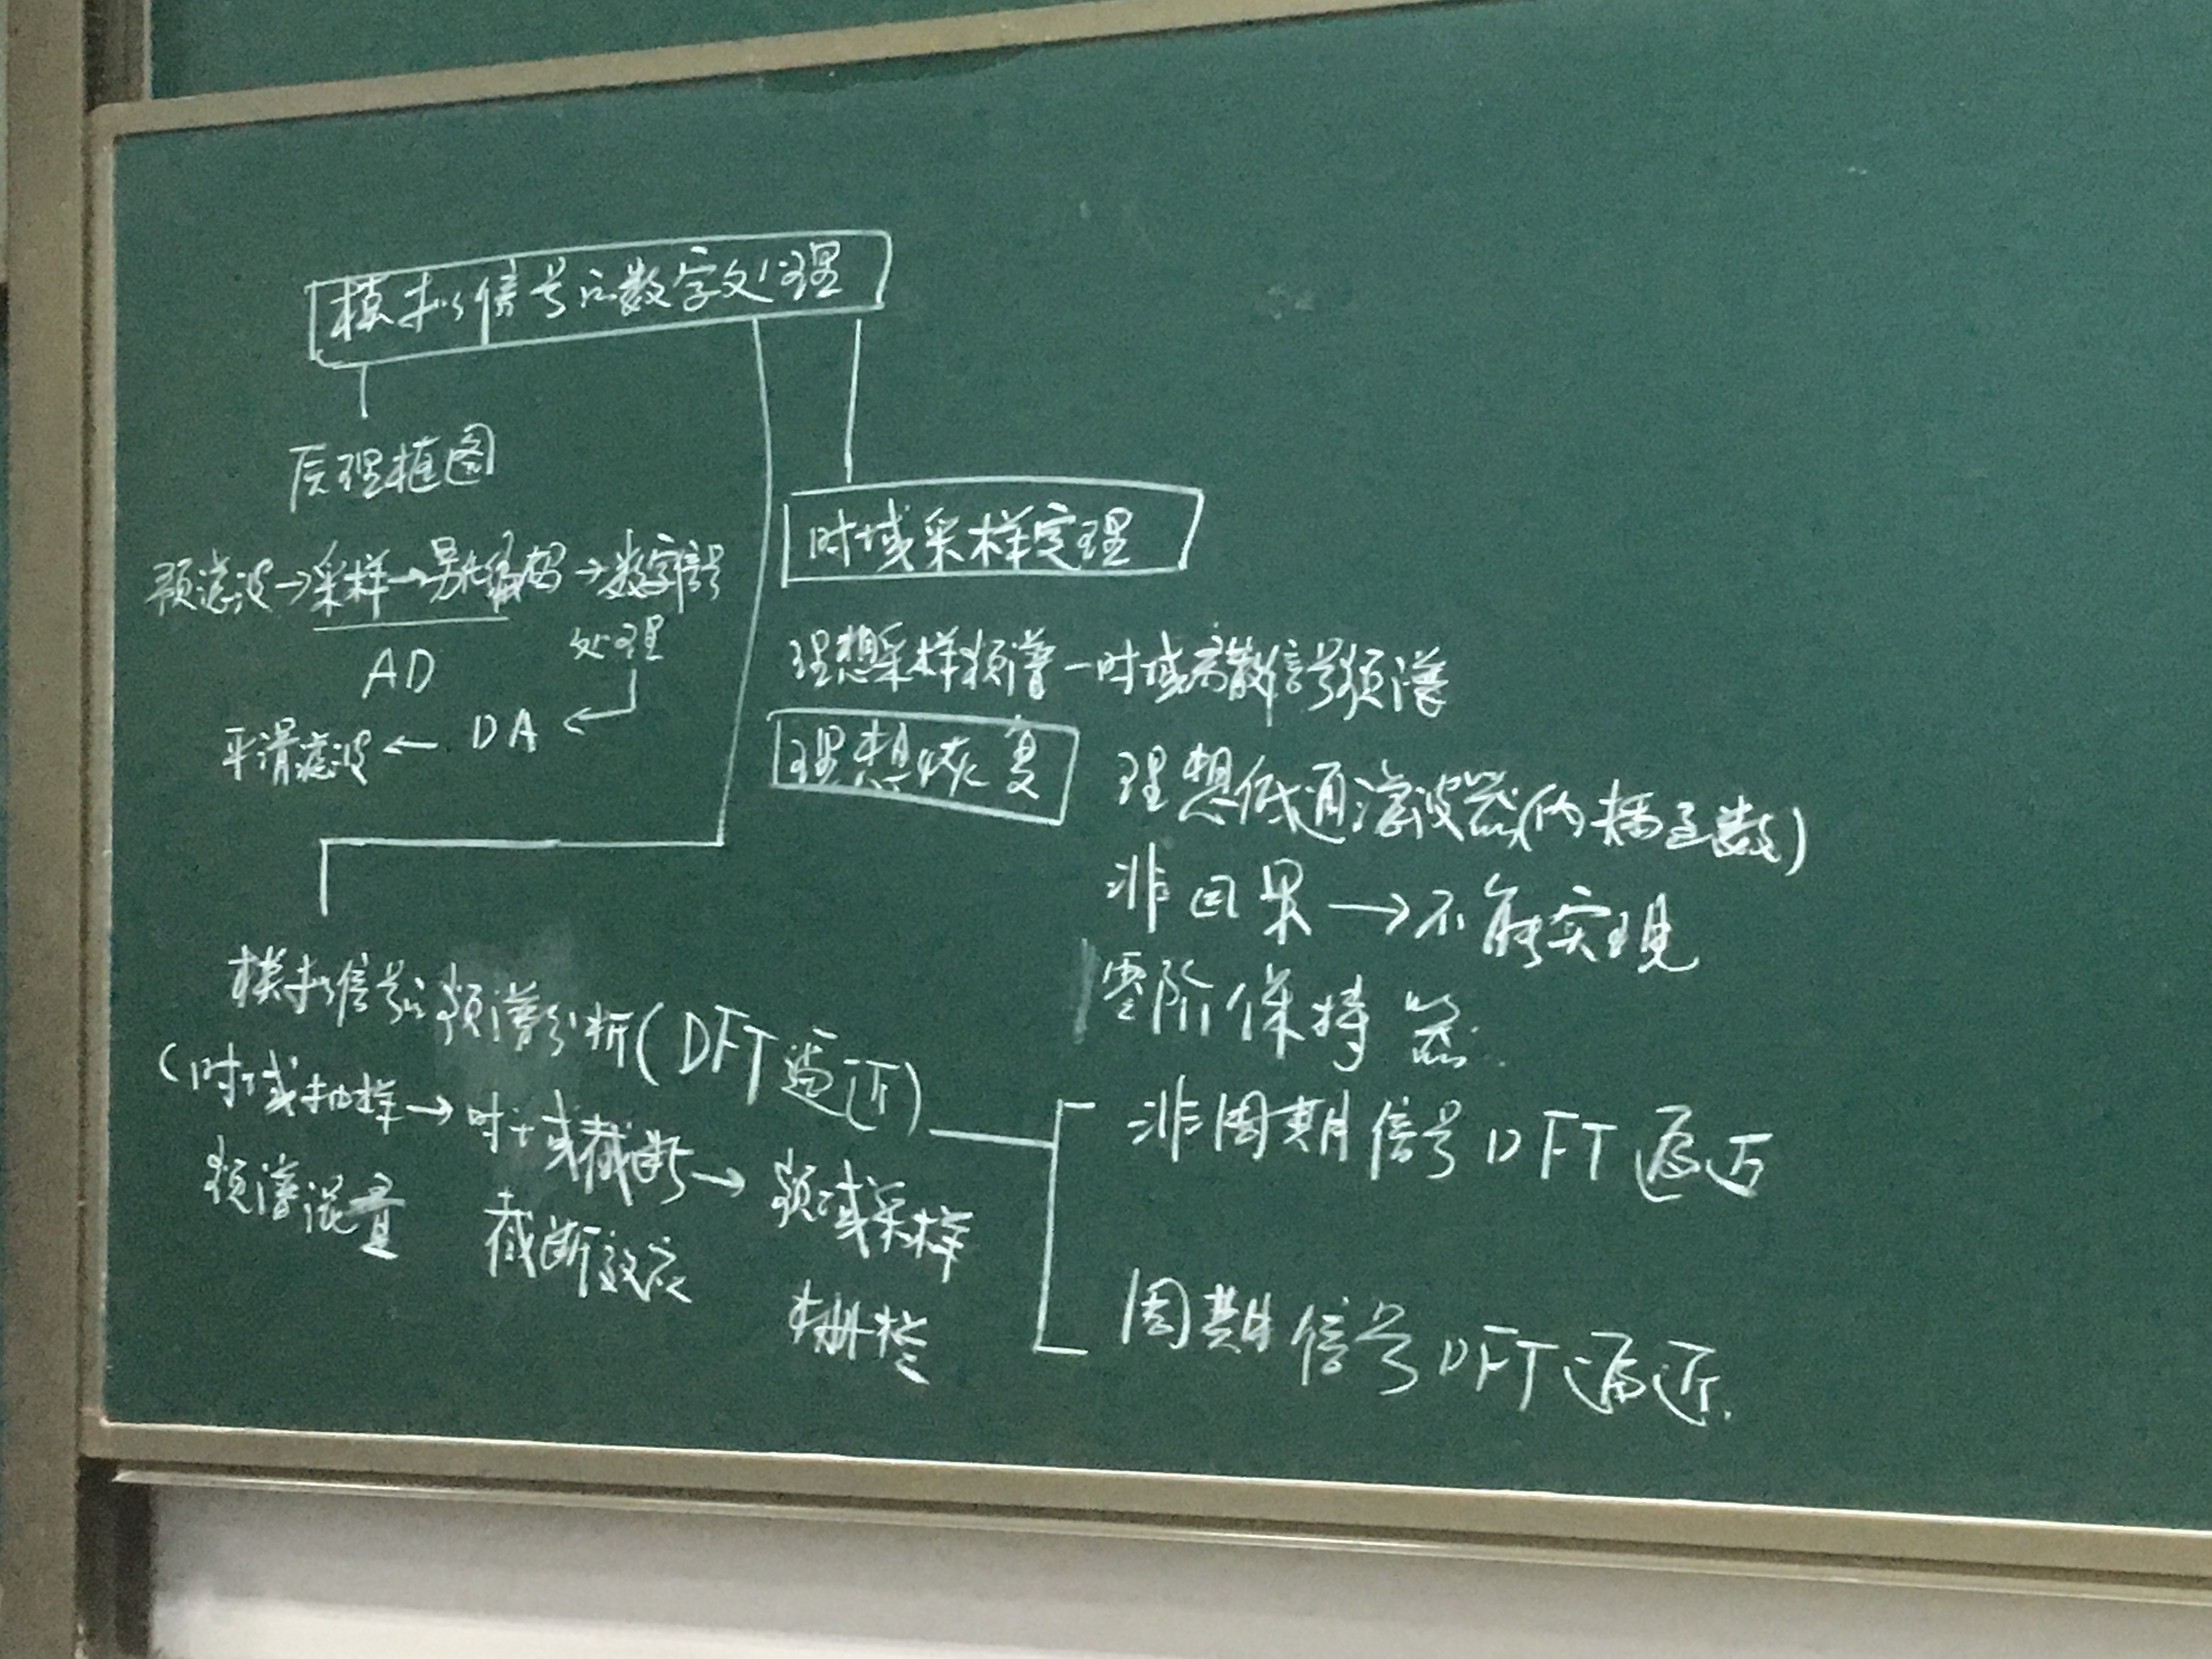 模拟信号的数字处理
原理框图
预滤波→采样→量化编码→数字信号
处理
AD
平滑滤波←DA
时域采样定理
理想采样频谱—时域离散信号频谱
理想恢复
理想低通滤波器(内插函数)
非因果→不能实现
零阶保持器
模拟信号的频谱分析(DFT逼近)
(时域抽样→时域截断→频域采样
频谱混叠
截断效应
栅栏
非周期信号DFT逼近
周期信号DFT逼近.